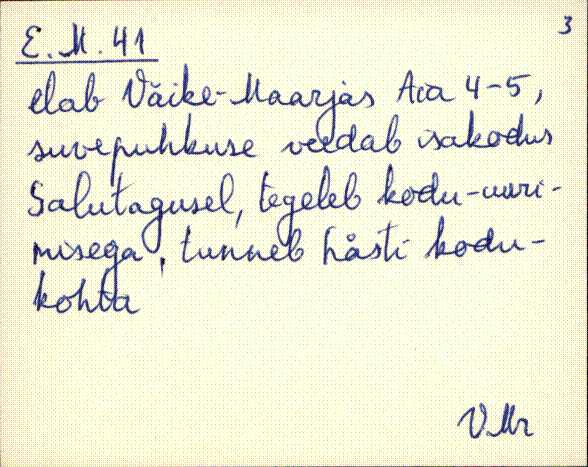 3
E. M. 41
elab Väike-Maarjas Aia 4-5,
suvepuhkuse veedab isakodus
Salutagusel, tegeleb kodu-uuri-
misega, tunneb hästi kodu-
kohta
V.Mr